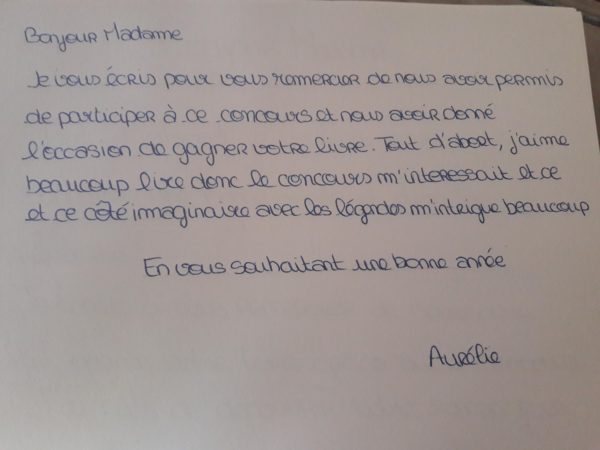 Bonjour Madame
Je vous écris pour vous remercier de nous avoir permis
de participer à ce concours et nous avoir donné
l'occasion de gagner votre livre. Tout d'abort, j'aime
beaucoup lire donc le concours m'interessait et ce
et ce côté imaginaire avec les légendes m'intrigue beaucoup
En vous souhaitant une bonne année
Aurélie